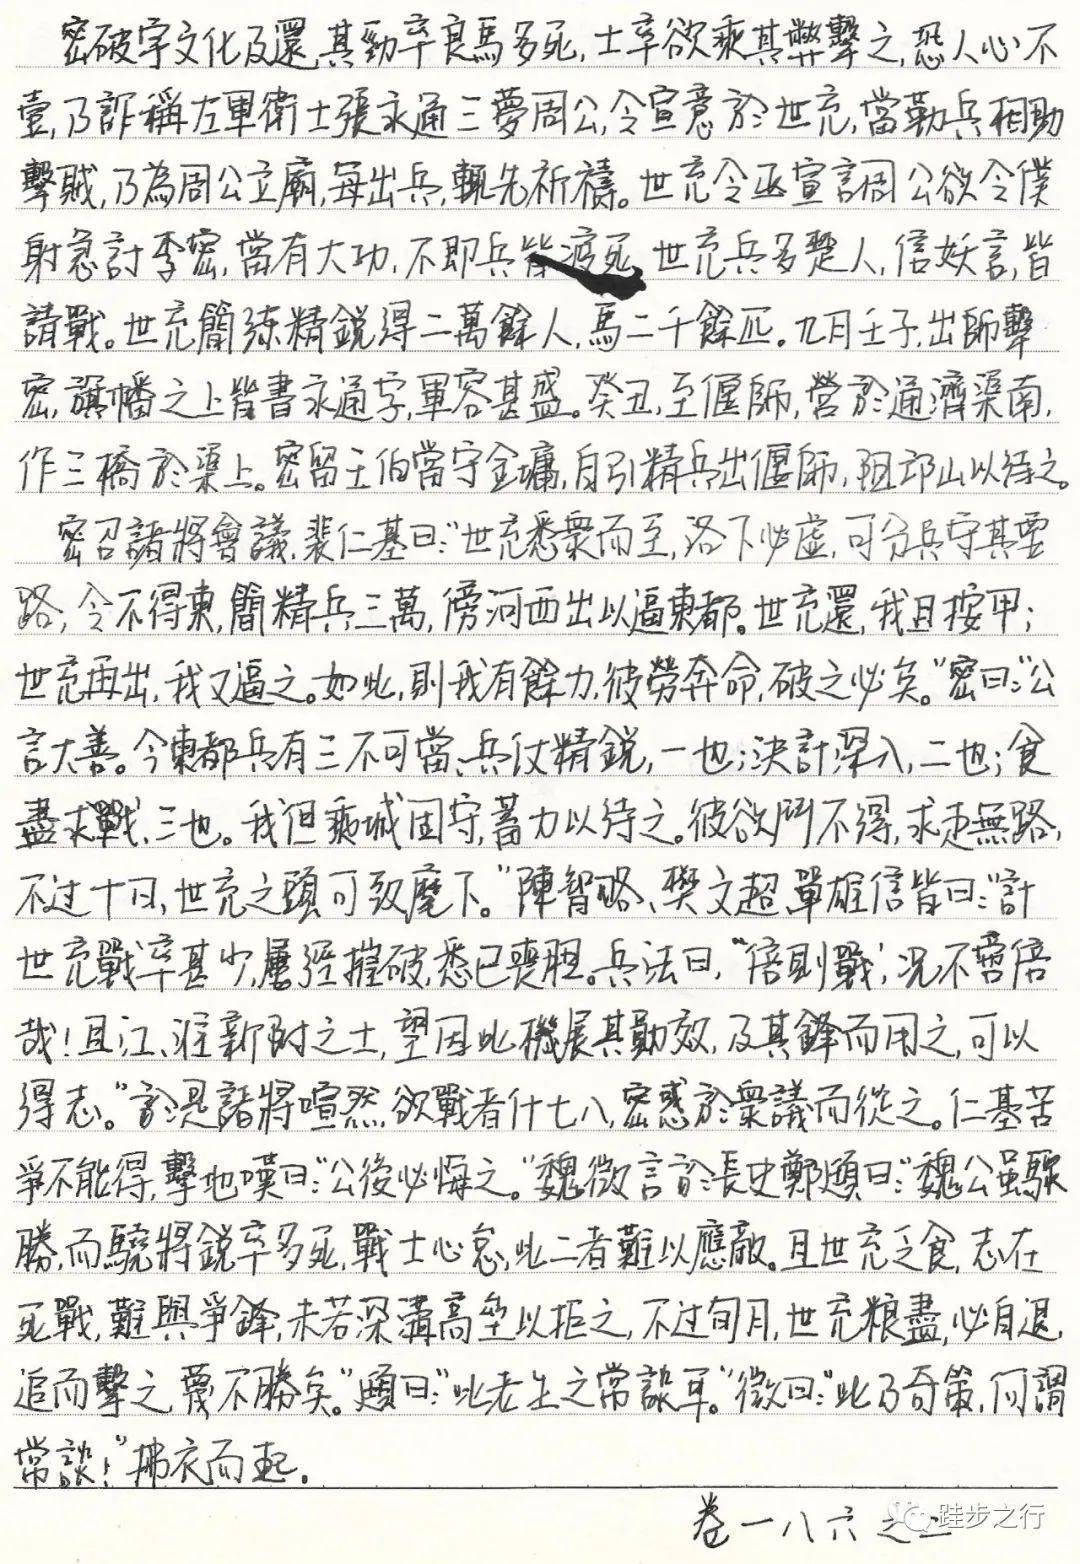 密破宇文化及還,其勁卒良馬多死,士卒欲乘其弊擊之,恐人心不
壹,乃詐稱左軍衛士張永通三夢周公,令宣意於世充,當勒兵相助
擊賊,乃為周公立廟,每出兵,輒先祈禱。世充令巫宣言周公欲令僕
射急討李密,當有大功,不即兵皆疫死 世充兵多楚人,信妖言,皆
請戰。世充簡練精銳得二萬餘人,馬二千餘匹。九月壬子,出師擊
密,旗幡之上皆書永通字,軍容甚盛。癸丑,至偃師,營於通濟渠南,
作三橋於渠上。密留王伯當守金墉,自引精兵出偃師,阻邙山以待之。
密召諸將會議,裴仁基曰:"世充悉衆而至,洛下必虛,可分兵守其要
路,令不得東,簡精兵三萬,傍河西出以逼東都。世充還,我且按甲;
世充再出,我又逼之。如此,則我有餘力,彼勞奔命,破之必矣。"密曰:"公
言大善。今東都兵有三不可當、兵仗精銳,一也;決計深入,二也;食
盡求戰,三也。我但乘城固守,蓄力以待之。彼欲鬥不得,求走無路,
不过十日,世充之頭可致麾下。"陳智略、樊文超 單雄信皆曰:"計
世充戰卒甚少,屢經摧破,悉已喪胆。兵法曰,"倍則戰',况不啻倍
哉!且江、淮新附之士,望因此機展其勛效,及其鋒而用之,可以
得志。"於是諸將喧然,欲戰者什七八,密惑於衆議而從之。仁基苦
爭不能得,擊地嘆曰:"公後必悔之。"魏徵言於長史鄭頲曰:"魏公雖驟
勝,而驍將銳卒多死,戰士心怠,此二者難以應敵。且世充乏食,志在
死戰,難與爭鋒,未若深溝高壘以拒之,不过旬月,世充粮盡,必自退,
追而擊之 蔑不勝矣。"頲曰:"此老生之常談耳。"徵曰:"此乃奇策,何謂
常談!"拂衣而起。
卷一八六之二
跬步之行